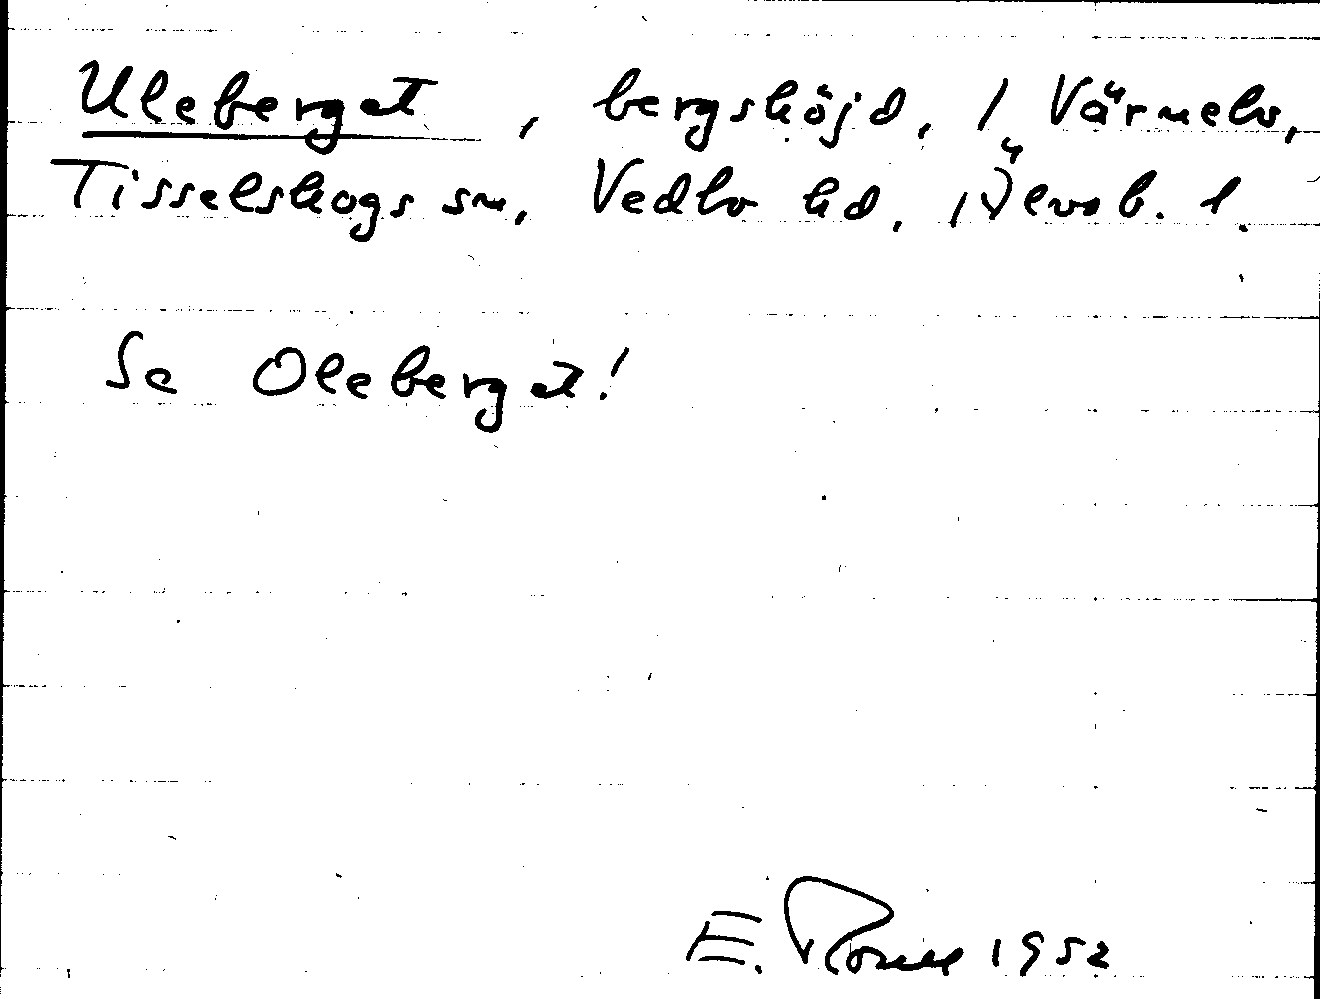 Uleberget, bergshöjd, 1 Värmelv,
Tisselskogs sn, Vedbo hd, Älvsb. l.
Se Oleberget!
E. 1952